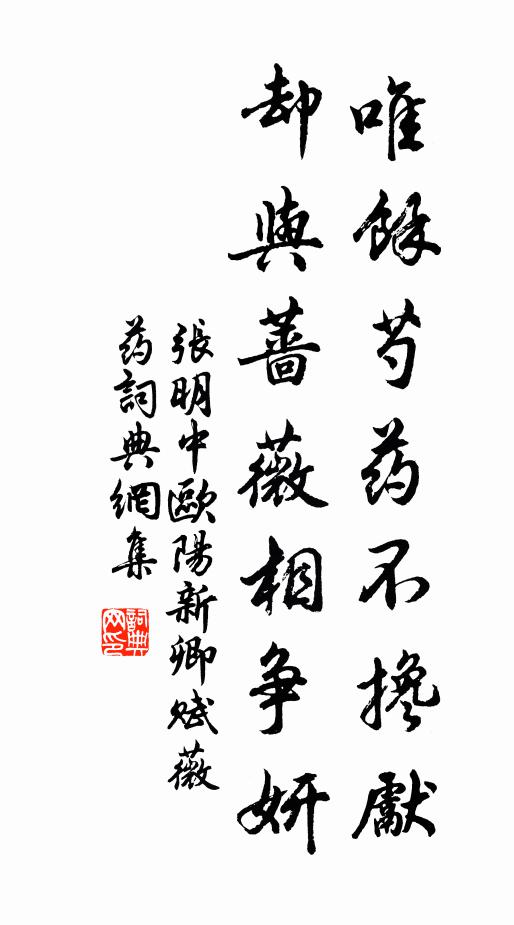 唯餘芍药不搀獻
却與蔷薇相争妍
張明中歐陽新卿赋薇
药詞典網集
詞典
网印